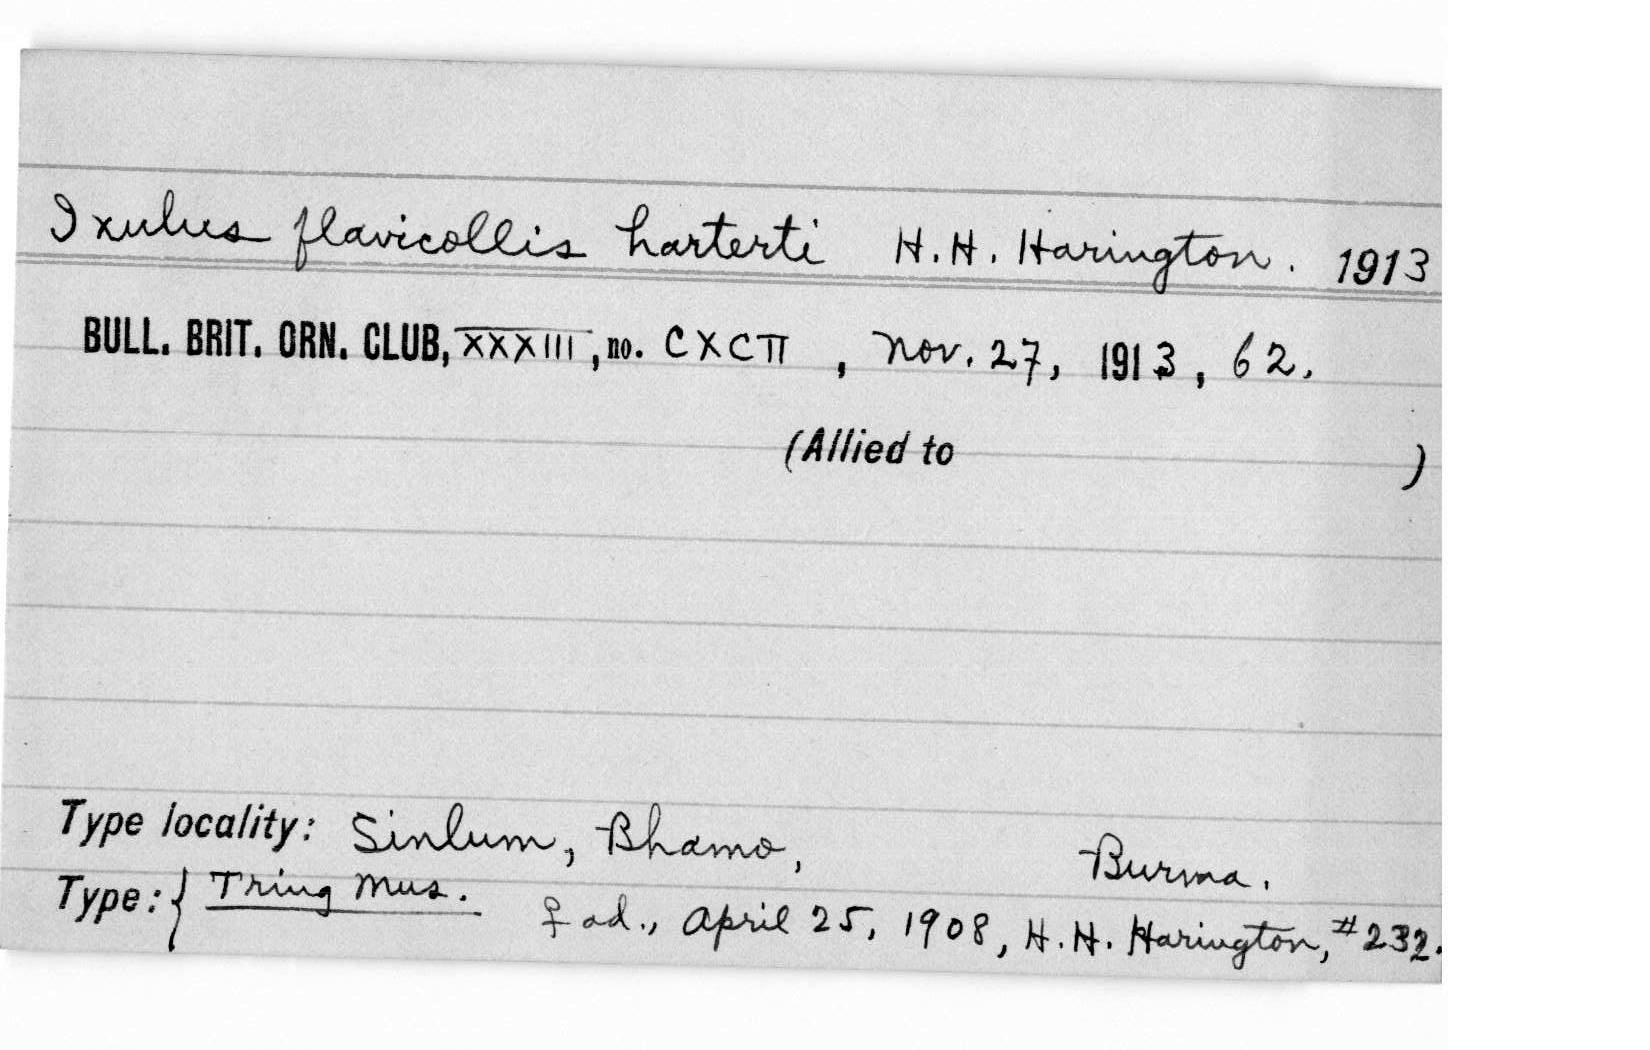 Ixulus flavicollis harterti H. H. Harington. 1913
BULL. BRIT. ORN. CLUB, XXXIII, no. CXCII, Nov. 27, 1913, 62.
(Allied to )
Type locality: Sinlum, Bhamo, Burma.
Type: { Tring Mus. ♀ ad., April 25, 1908, H. H. Harington, #232.